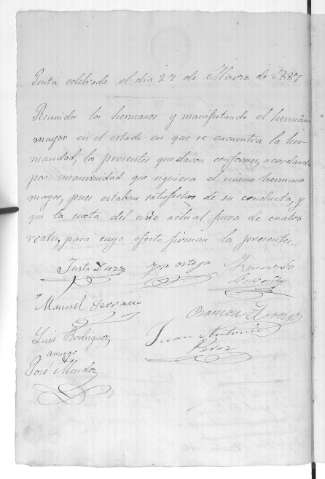 Junta celebrada el dia 27 de Marzo de 1887
Reunidos los hermanos y manifestando el hermano
mayor en el estado en que se encuentra la her-
mandad, los presentes quedaron conformes, acordando
por unanimidad que siguiera el mismo hermano
mayor, pues estaban satisfechos de su conducta, y
que la cuota del año actual fuera de cuatro
reales, para cuyo efecto firman los presentes.
Justo Jose Ortega
Manuel
Luis Rodriguez Juan Antonio
José Mendez